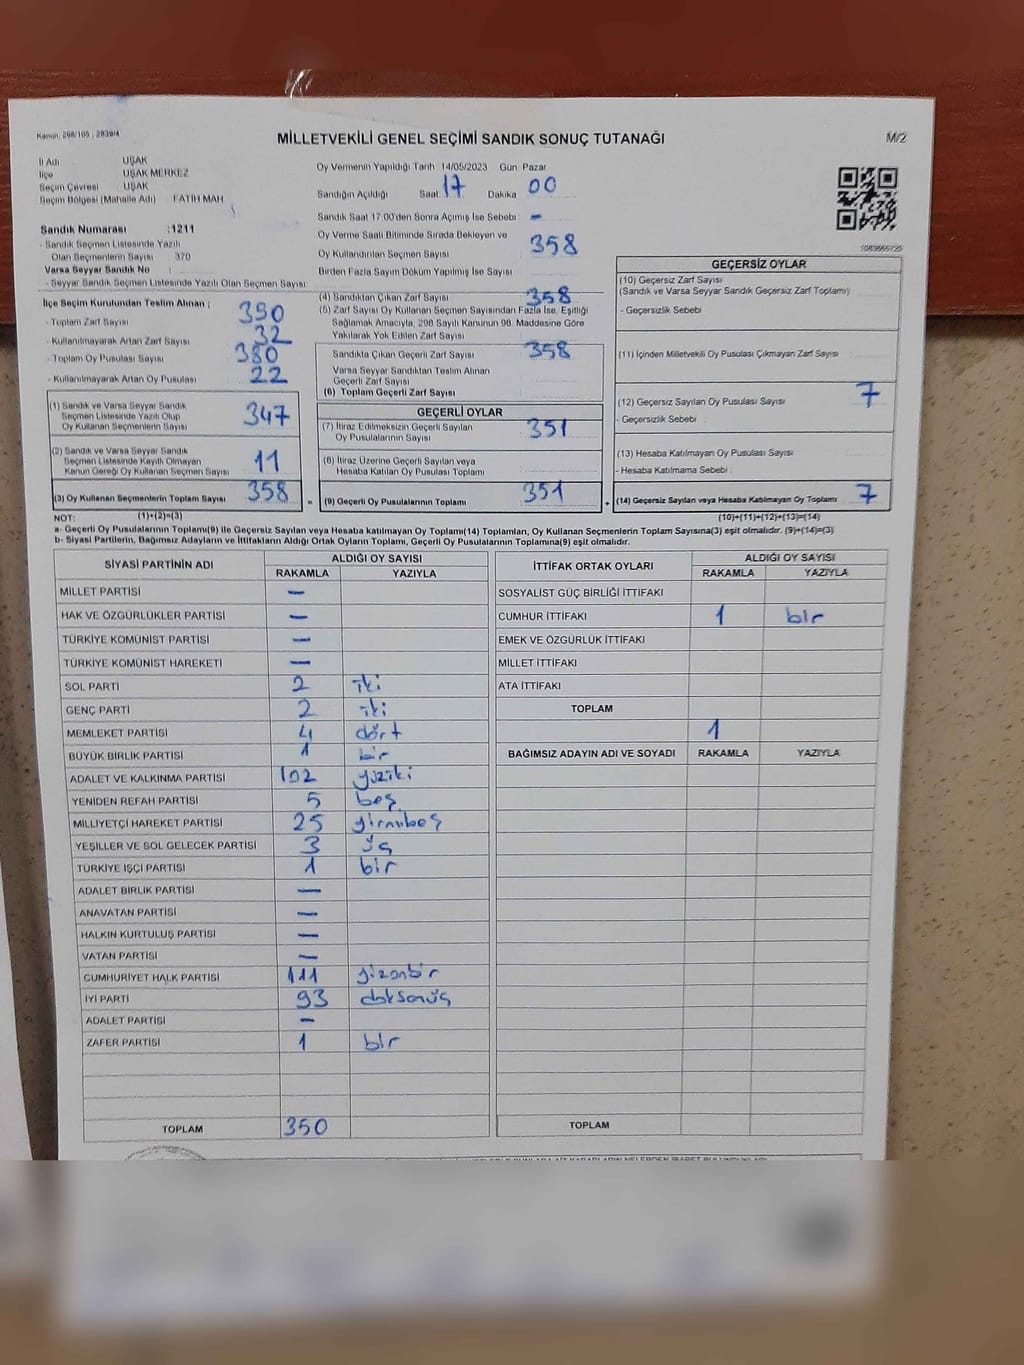 Kanun, 298/105 , 2839/4
MİLLETVEKİLİ GENEL SEÇİMİ SANDIK SONUÇ TUTANAĞI
M/2
İl Adı UŞAK
İlçe UŞAK MERKEZ
Seçim Çevresi UŞAK
Seçim Bölgesi (Mahalle Adı) FATİH MAH
Sandık Numarası :1211
- Sandık Seçmen Listesinde Yazılı
Olan Seçmenlerin Sayısı : 370
Varsa Seyyar Sandık No :
- Seyyar Sandık Seçmen Listesinde Yazılı Olan Seçmen Sayısı
Oy Vermenin Yapıldığı Tarih 14/05/2023 Gün Pazar
Sandığın Açıldığı Saat 17 Dakika 00
Sandık Saat 17.00'den Sonra Açımış İse Sebebi -
Oy Verme Saati Bitiminde Sırada Bekleyen ve
Oy Kullandırılan Seçmen Sayısı 358
Birden Fazla Sayım Döküm Yapılmış İse Sayısı
İlçe Seçim Kurulundan Teslim Alınan ;
- Toplam Zarf Sayısı 390
- Kullanılmayarak Artan Zarf Sayısı 32
- Toplam Oy Pusulası Sayısı 380
- Kullanılmayarak Artan Oy Pusulası 22
(1) Sandık ve Varsa Seyyar Sandık
Seçmen Listesinde Yazılı Olup
Oy Kullanan Seçmenlerin Sayısı 347
(2) Sandık ve Varsa Seyyar Sandık
Seçmen Listesinde Kayıtlı Olmayan
Kanun Gereği Oy Kullanan Seçmen Sayısı 11
(3) Oy Kullanan Seçmenlerin Toplam Sayısı 358
(1)+(2)=(3)
(4) Sandıktan Çıkan Zarf Sayısı 358
(5) Zarf Sayısı Oy Kullanan Seçmen Sayısından Fazla İse, Eşitliği
Sağlamak Amacıyla, 298 Sayılı Kanunun 98. Maddesine Göre
Yakılarak Yok Edilen Zarf Sayısı
Sandıkta Çıkan Geçerli Zarf Sayısı 358
Varsa Seyyar Sandıktan Teslim Alınan
Geçerli Zarf Sayısı
(6) Toplam Geçerli Zarf Sayısı
GEÇERLİ OYLAR
(7) İtiraz Edilmeksizin Geçerli Sayılan
Oy Pusulalarının Sayısı 351
(8) İtiraz Üzerine Geçerli Sayılan veya
Hesaba Katılan Oy Pusulaları Toplamı
= (9) Geçerli Oy Pusulalarının Toplamı 351
1083655720
GEÇERSİZ OYLAR
(10) Geçersiz Zarf Sayısı
(Sandık ve Varsa Seyyar Sandık Geçersiz Zarf Toplamı)
- Geçersizlik Sebebi
(11) İçinden Milletvekili Oy Pusulası Çıkmayan Zarf Sayısı
(12) Geçersiz Sayılan Oy Pusulası Sayısı 7
- Geçersizlik Sebebi
(13) Hesaba Katılmayan Oy Pusulası Sayısı
- Hesaba Katılmama Sebebi
+ (14) Geçersiz Sayılan veya Hesaba Katılmayan Oy Toplamı 7
(10)+(11)+(12)+(13)=(14)
NOT:
a- Geçerli Oy Pusulalarının Toplamı(9) ile Geçersiz Sayılan veya Hesaba katılmayan Oy Toplamı(14) Toplamları, Oy Kullanan Seçmenlerin Toplam Sayısına(3) eşit olmalıdır. (9)+(14)=(3)
b- Siyasi Partilerin, Bağımsız Adayların ve İttifakların Aldığı Ortak Oyların Toplamı, Geçerli Oy Pusulalarının Toplamına(9) eşit olmalıdır.
SİYASİ PARTİNİN ADI ALDIĞI OY SAYISI
RAKAMLA YAZIYLA
MİLLET PARTİSİ -
HAK VE ÖZGÜRLÜKLER PARTİSİ -
TÜRKİYE KOMÜNİST PARTİSİ -
TÜRKİYE KOMÜNİST HAREKETİ -
SOL PARTİ 2 iki
GENÇ PARTİ 2 iki
MEMLEKET PARTİSİ 4 dört
BÜYÜK BİRLİK PARTİSİ 1 bir
ADALET VE KALKINMA PARTİSİ 102 yüziki
YENİDEN REFAH PARTİSİ 5 beş
MİLLİYETÇİ HAREKET PARTİSİ 25 yirmibeş
YEŞİLLER VE SOL GELECEK PARTİSİ 3 üç
TÜRKİYE İŞÇİ PARTİSİ 1 bir
ADALET BİRLİK PARTİSİ -
ANAVATAN PARTİSİ -
HALKIN KURTULUŞ PARTİSİ -
VATAN PARTİSİ -
CUMHURİYET HALK PARTİSİ 111 yüzonbir
İYİ PARTİ 93 doksanüç
ADALET PARTİSİ -
ZAFER PARTİSİ 1 bir
TOPLAM 350
İTTİFAK ORTAK OYLARI ALDIĞI OY SAYISI
RAKAMLA YAZIYLA
SOSYALİST GÜÇ BİRLİĞİ İTTİFAKI
CUMHUR İTTİFAKI 1 bir
EMEK VE ÖZGÜRLÜK İTTİFAKI
MİLLET İTTİFAKI
ATA İTTİFAKI
TOPLAM 1
BAĞIMSIZ ADAYIN ADI VE SOYADI RAKAMLA YAZIYLA
TOPLAM